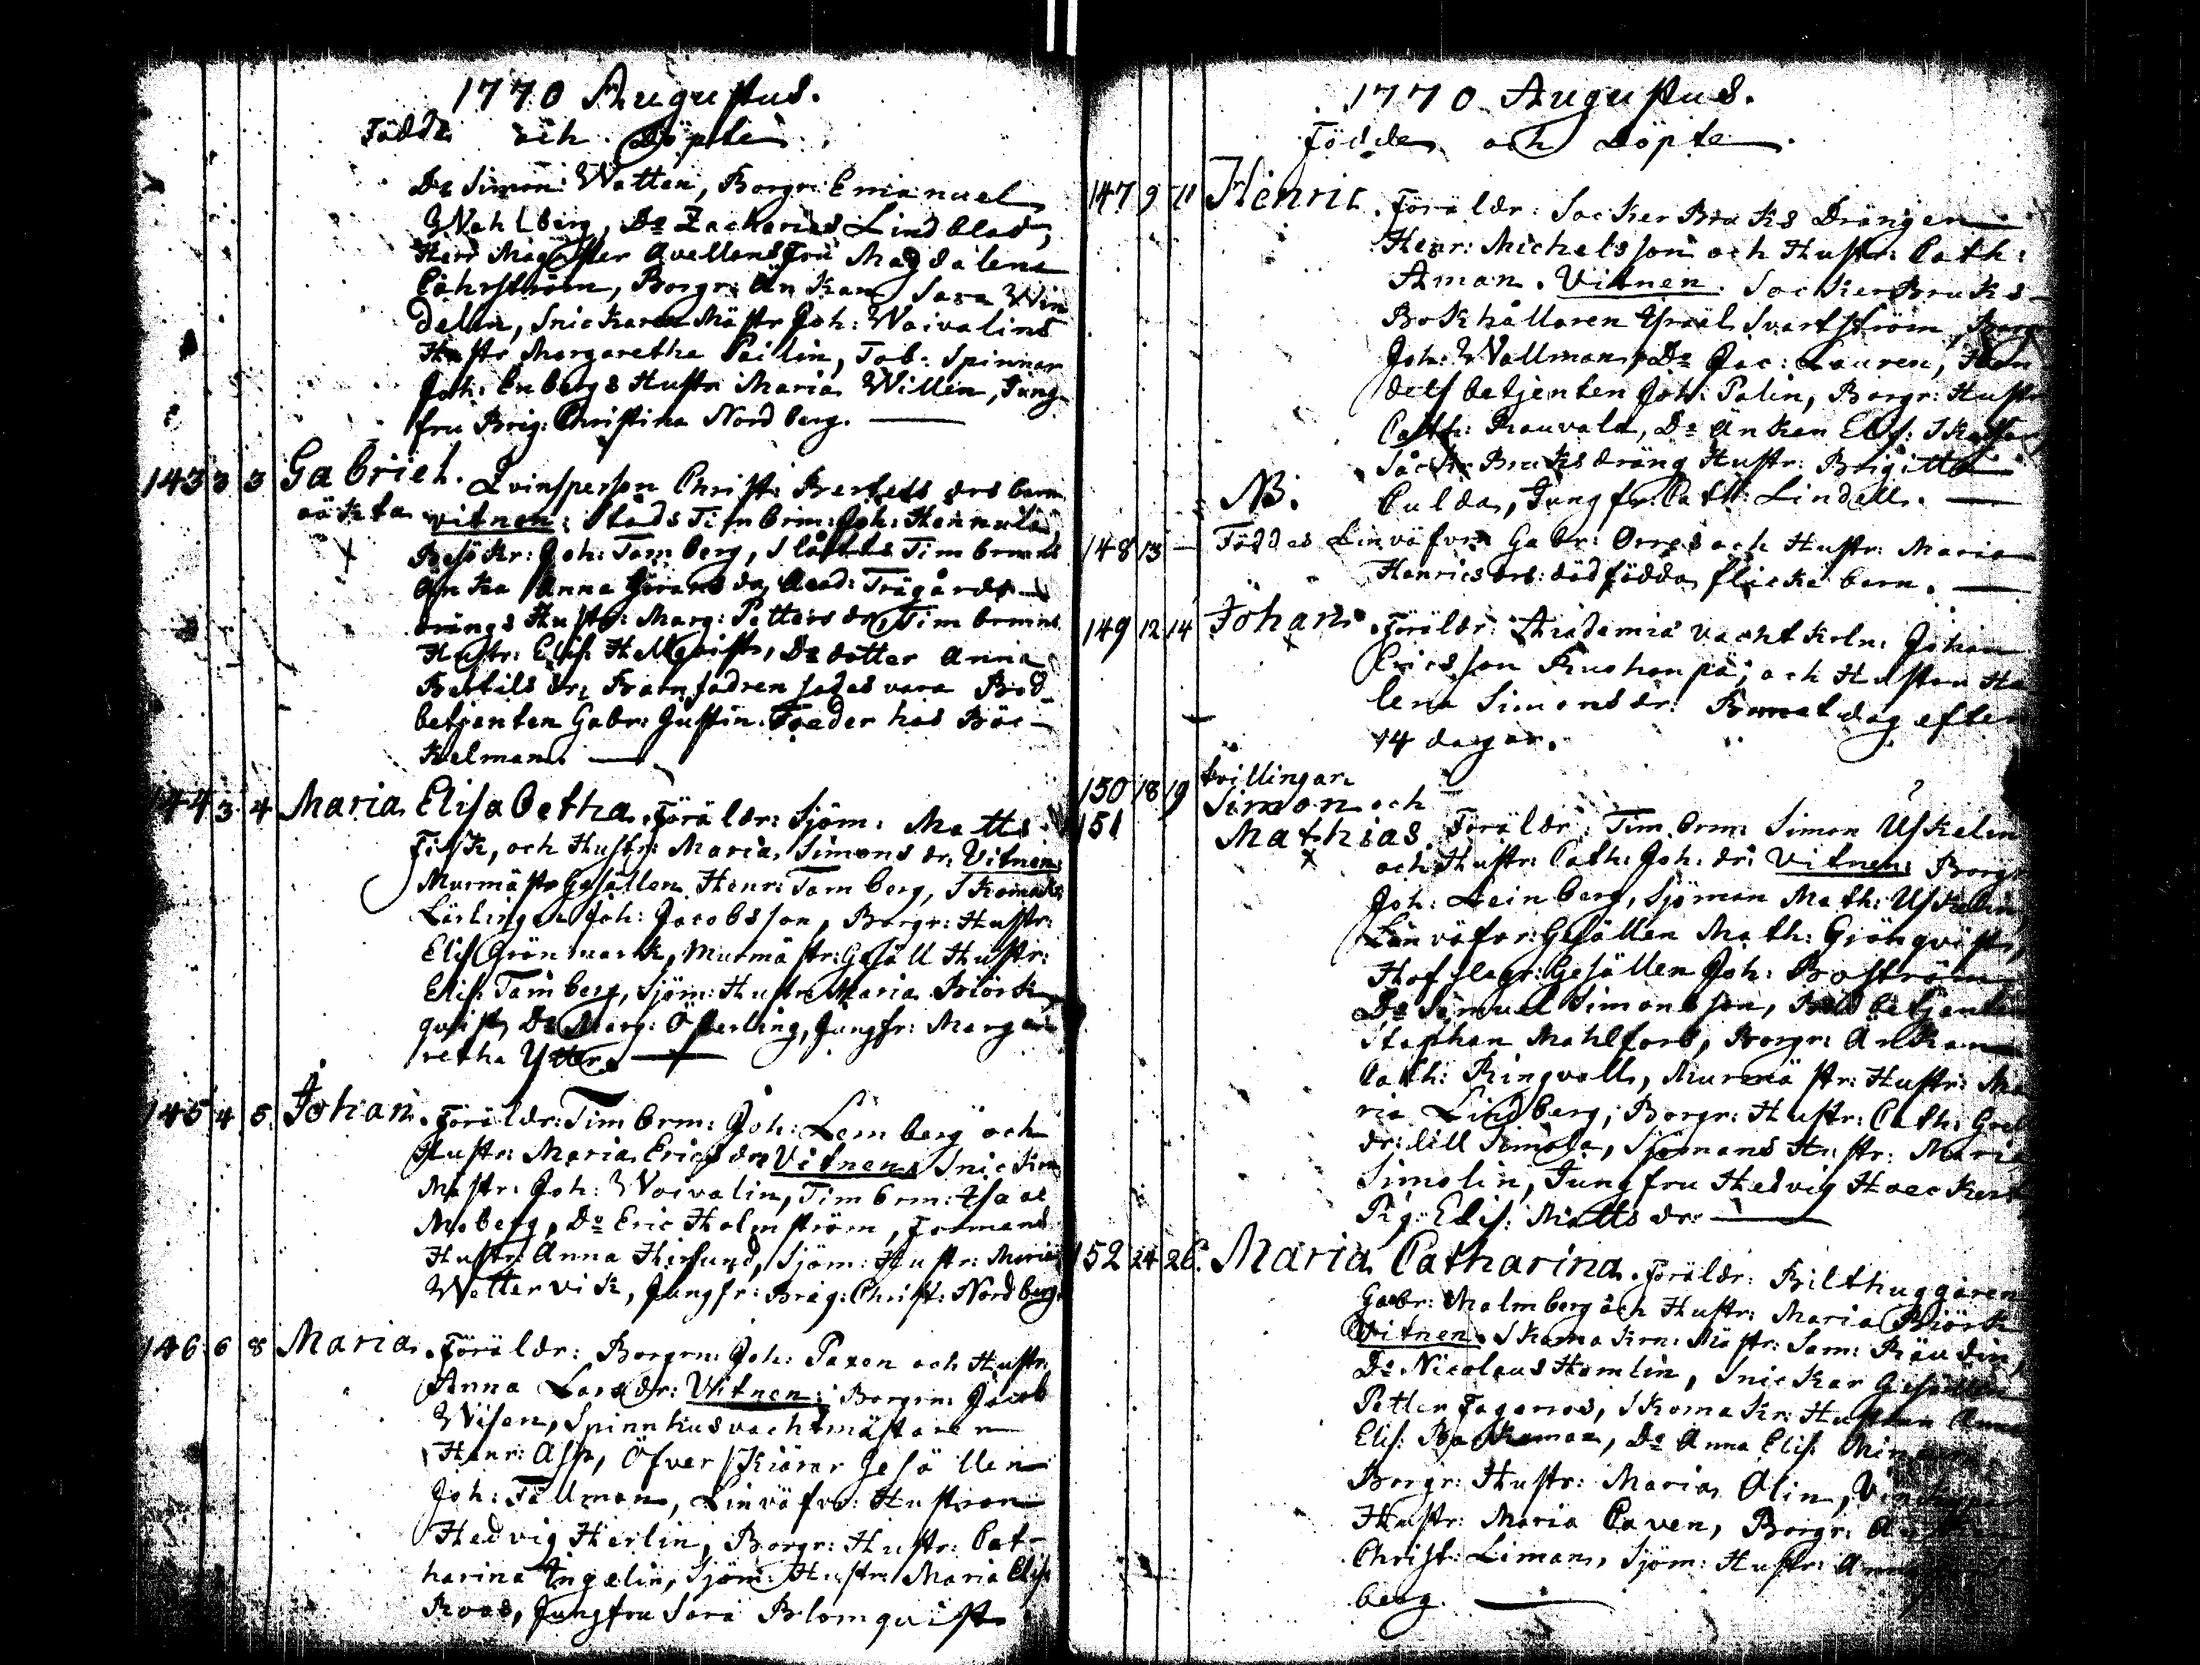 1770 Augustus.
Födde och Döpte.
Do Simon Watten, Borgr: Emanuel
Wahlberg, Do Zacharias Lindblad,
Herr Magister Avellens Fru Magdalena
Borgr: Änkan Sara Win
delin, Snickare Mästr Joh: Woivalins
Hustr Margaretha Pailin, Tob: Spinnar
Joh: Enbergs Hustr Maria Willen, Jung
fru Brig: Christina Nordberg.
143 3 3 Gabriel. Qvinsperson Christ: Bertils drs barn
oäkta vitnen: Stads Timbrm: Joh: Hannula
Besökr: Joh: Tamberg, Slotts Timbrmans
Änka Anna Görans dr, Acad: Trägårds
drängs Hustr: Marg: Petters dr, Timbrmns
Hustr: Elis: Hellqvist, Do dotter Anna
Bertils dr, Barnfadren sades vara Bod
betjenten Gabr: Gustin. Föder hos Böc-
kelman.
144 3 4 Maria Elisabetha. Föräldr: Sjöm: Matts
Fisk, och Hustr: Maria Simons dr: Vitnen:
Murmästr Gesällen Henr: Tamberg, Skomakr
Lärlingen Joh: Jacobsson, Borgr: Hustr:
Elis Grönmark, Murmästr: Gesäll Hustr:
Elis: Tamberg, Sjöm: Hustr Maria Biörk
qvist, Do Marg: Österling, Jungfr: Marga
retha Ytter.
145 4 5 Johan. Föräldr: Timbrm: Joh: Lemberg och
Hustr: Maria Erics dr Vitnen, Snickr
Mästr: Joh: Woivalin, Timbrm: Isaac
Moberg, Do Eric Holmström, Formans
Hustr: Anna Hirsund, Sjöm: Hustr: Maria
Wettervik, Jungfr: Brig: Christ: Nordberg.
146 6 8 Maria. Föräldr: Borgrn: Joh: Paxen och Hustr:
Anna Larsdr: Vitnen: Borgrn: Jacob
Wisen, Spinnhusvachtmästaren
Henr: Asp, Öfverskiärar Gesällen
Joh: Tallman, Linväfvr: Hustron
Hedvig Herlin, Borgr: Hustr: Cat-
harina Ingelin, Sjöm: Hustr Maria Elis
Roos, Jungfru Sara Blomqvist
1770 Augustus.
Födde och Döpte.
147 9 11 Henric. Föräldr: SockerBruks Drängen
Henr: Michelsson och Hustr: Cath:
Aman. Vitnen. SockerBruks-
Bokhållaren Israel Svartström, Borgr
Joh: Wallman, Do Jac: Lauren, Han
delsbetjenten Joh: Palin, Borgr: Hustr
Cath: Rauvala, Do Änkan Elis:
Sockr Bruksdräng Hustr: Brigitta
NB. Culda, Jungfr: Cath: Lindell.
148 13 – Föddes Linväfvr Gabr: Orres och Hustr: Maria
Henricsdrs: dödfödda flickebarn.
149 12 14 Johan. Föräldr: Academiæ vachtkrln: Johan
Ericsson Ruohonpä, och Hustrn He
lena Simonsdr: Bönnedag efter
14 dagar.
tvillingar.
150 18 19 Simon och
151 Mathias. Föräldr: Timbrm: Simon Uskelin
och Hustr: Cath: Joh: dr: Vitnen: Borgr
Joh: Leinberg, Sjöman Math: Uskelin,
Linväfvr: Gesällen Math: Grönqvist,
Hofslagr: Gesällen Joh: Boström
Do Samuel Simonsson, Bodbetjenten
Stephan Mahlfors, Borgr: Änkan
Cath: Ringvall, Murmästr: Hustr: Ma
ria Lindberg, Borgr: Hustr: Cath:
Simola, Sjömans Hustr: Maria
Simolin, Jungfru Hedvig Hoeckert
Pig: Elis: Matts dr:
152 24 26. Maria Catharina. Föräldr: Bilthuggaren
Gabr: Malmberg och Hustr: Maria Biörk
Vitnen. Skomakrn: Mästr: Sam: Räudin,
Do Nicolaus Hamlin, Snickar Gesällen
Petter Fagerros, Skomakr: Hustrun Anna
Elis: Backman, Do Anna Elis:
Borgr: Hustr: Maria Alin,
Hustr: Maria Caven, Borgr:
Christ: Liman, Sjöm: Hustr: Anna
berg.